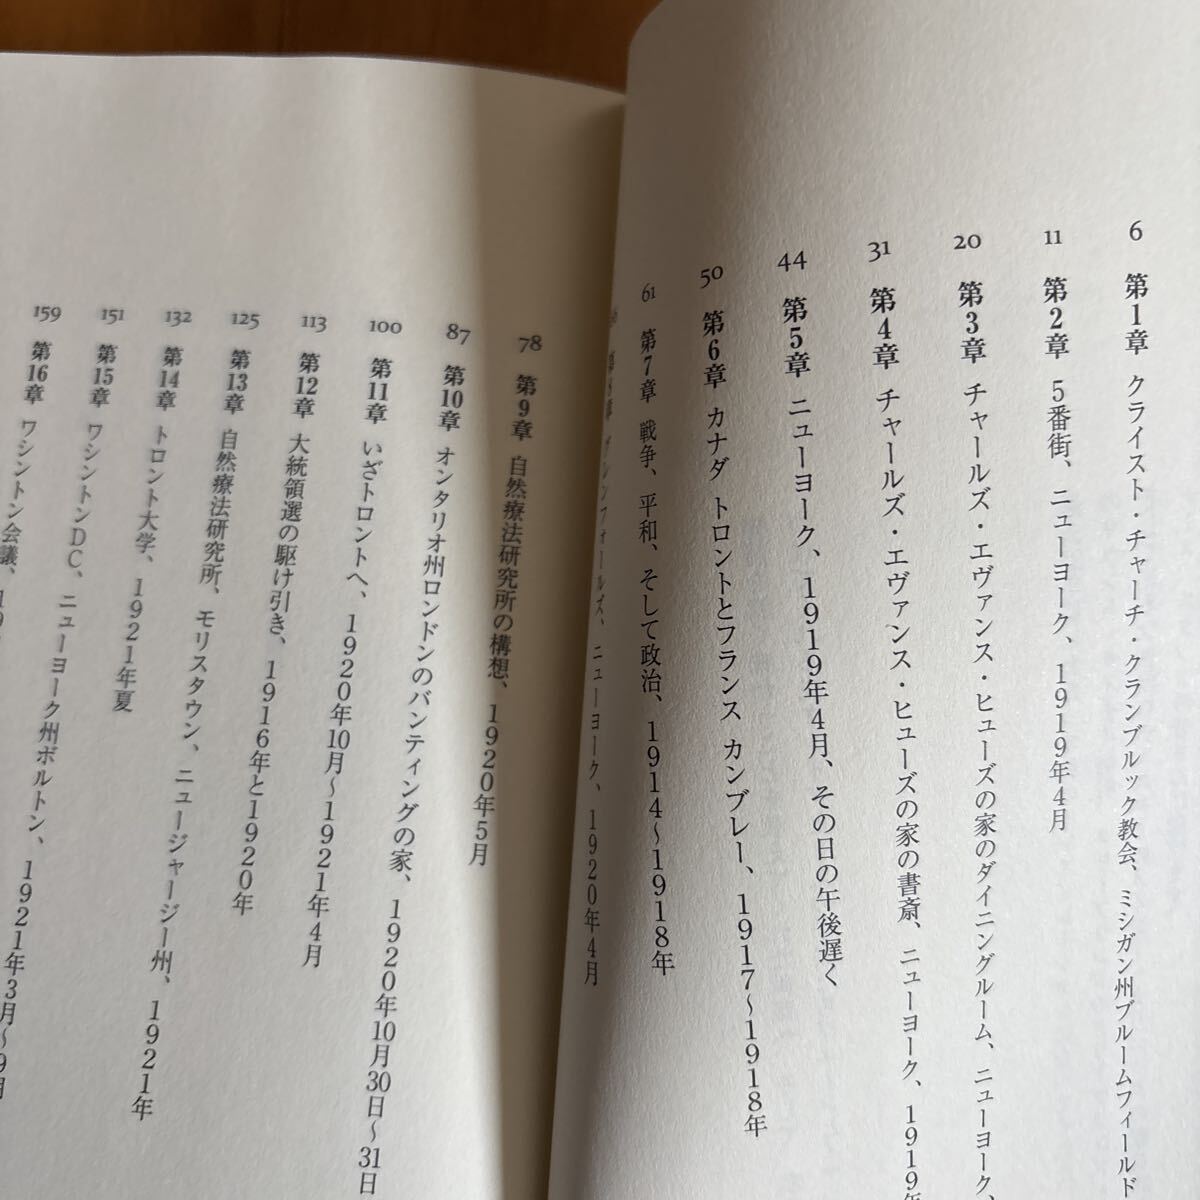 6 第1章 クライスト・チャーチ・クランブルック教会、ミシガン州ブルームフィールド
11 第2章 5番街、ニューヨーク、1919年4月
20 第3章 チャールズ・エヴァンス・ヒューズの家のダイニングルーム、ニューヨーク
31 第4章 チャールズ・エヴァンス・ヒューズの家の書斎、ニューヨーク、1919年
44 第5章 ニューヨーク、1919年4月、その日の午後遅く
50 第6章 カナダ トロントとフランス カンブレー、1917〜1918年
61 第7章 戦争、平和、そして政治、1914〜1918年
第8章 グレンフォールズ、ニューヨーク、1920年4月
78 第9章 自然療法研究所の構想、1920年5月
87 第10章 オンタリオ州ロンドンのバンティングの家、1920年10月30日〜31日
100 第11章 いざトロントへ、1920年10月〜1921年4月
113 第12章 大統領選の駆け引き、1916年と1920年
125 第13章 自然療法研究所、モリスタウン、ニュージャージー州、1921年
132 第14章 トロント大学、1921年夏
151 第15章 ワシントンDC、ニューヨーク州ボルトン、1921年3月〜9月
159 第16章 ワシントン会議、